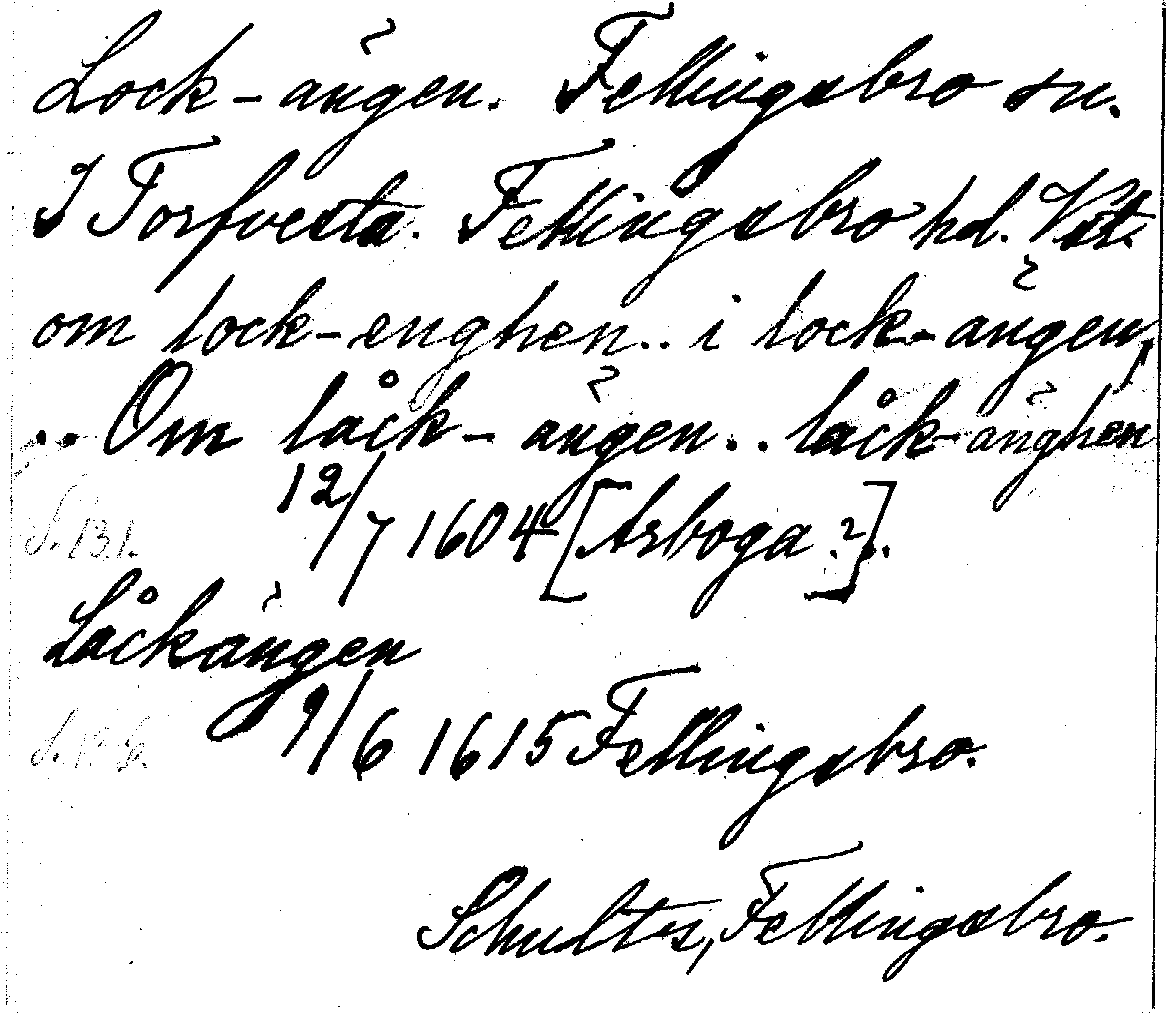 Lock-ängen. Fellingsbro sn.
I Torfvesta. Fellingsbro hd. Vst.
om lock-enghen.. i lock-ängen,
.. Om låck-ängen.. låck-änghen
S. 131. 12/7 1604 [Arboga?].
Låckängen
9/6 1615 Fellingsbro.
Schultes, Fellingsbro.